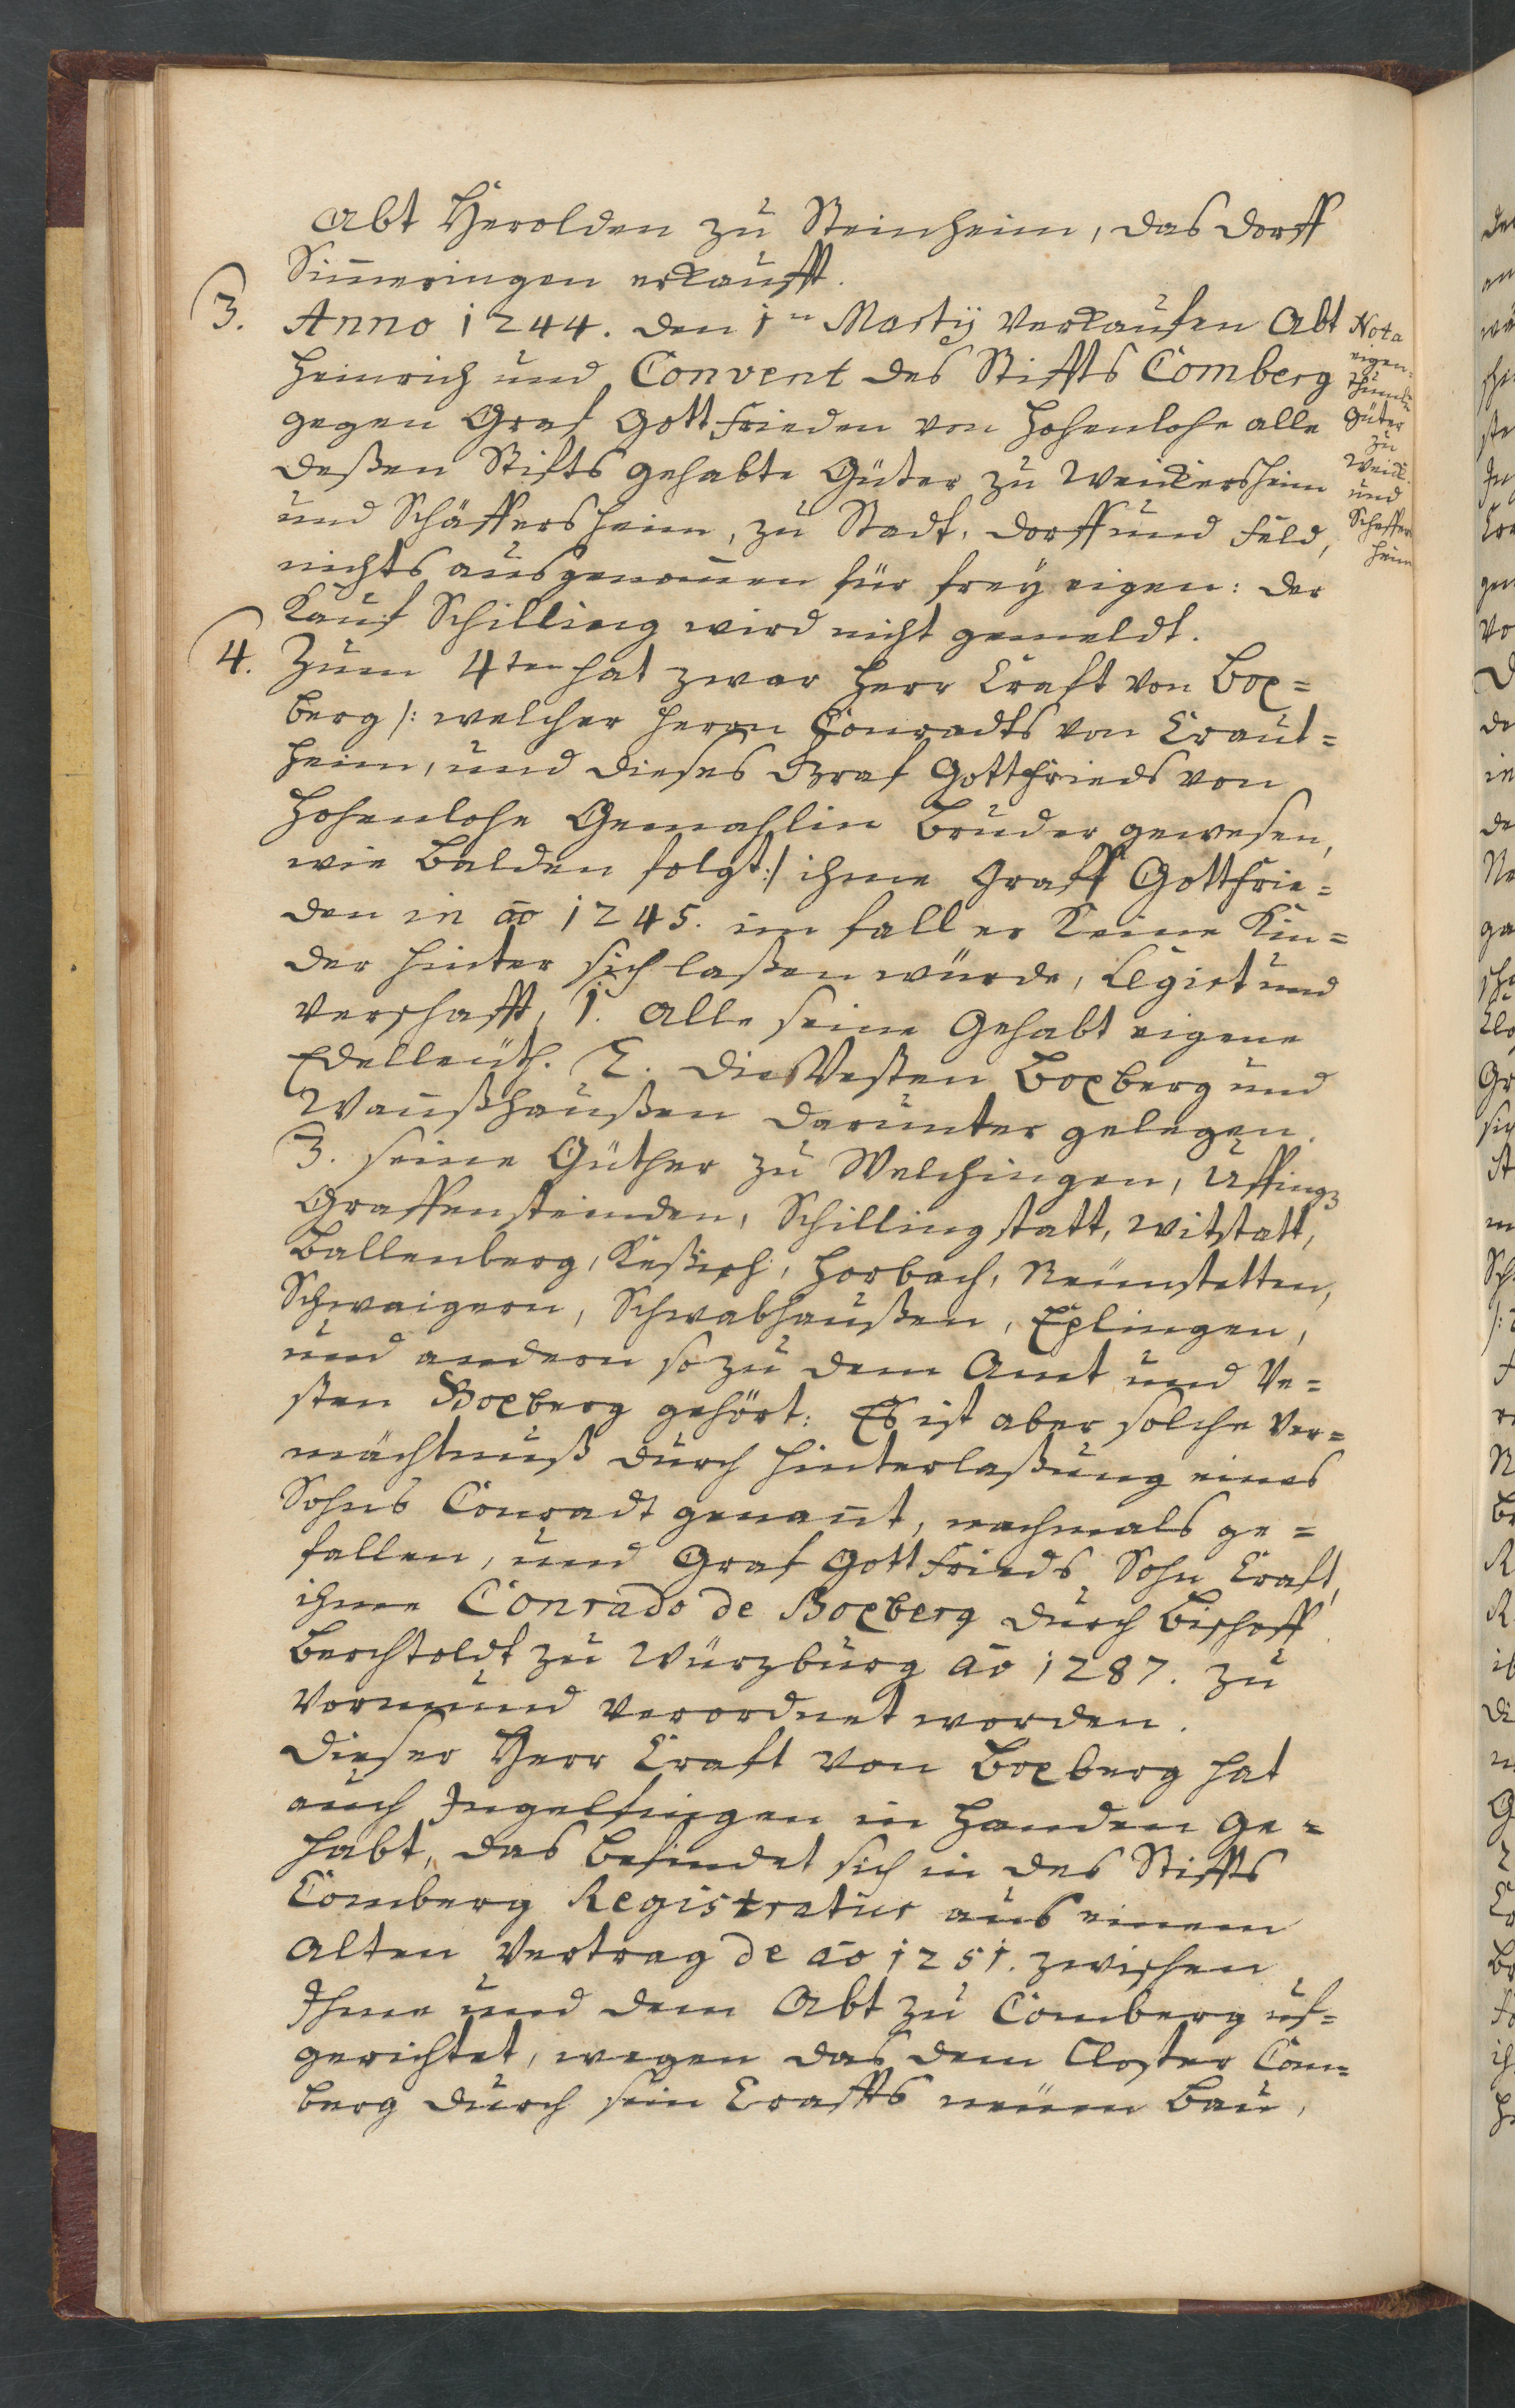 Abt Herolden zu Steinheim, das dorff
Sim̄eringen erkaufft.
3. Anno 1244. den 1.n Martÿ verkaufen Abt
Heinrich und Convent des Stiffts Comberg
gegen Graf Gottfrieden von Hohenlohe alle
deßen Stifts gehabte Güter zu Weickersheim
und Schäffersheim, zu Stadt, dorff und feld,
nichts ausgenom̄en für freÿ eigen: der
Kauf Schilling wird nicht gemeldt.
Nota
eigen-
thümb
Güter
zu
Weick.
und
Scheffer
heim
4. Zum 4ten hat zwar Herr Craft von Box=
berg /: welcher Herrn Conradts von Craut=
heim, und dieses Graf Gottfrieds von
Hohenlohe Gemahlin Bruder gewesen,
wie balden folgt :/ ihme Graff Gottfrie=
den in ao 1245. im fall er Keine Kin=
der hinter sich laßen würde, legirt und
verschafft, 1. Alle seine Gehabt eigene
Edelleüth. 2. die Vesten Boxberg und
Wan̄ßhaußen darunter gelegen.
3. seine Güther zu Welchingen, Uffing
Graffensteinden, Schillingstatt, Witstatt,
Ballenberg, Keßach, Horbach, Neünstetten,
Schwaigern, Schwabhaußen, Eplingen,
und andern so zu dem Amt und Ve=
sten Boxberg gehört: Es ist aber solche Ver=
mächtnuß durch hinterlaßung eines
Sohns Conradt genan̄t, nachmals ge=
fallen, und Graf Gottfrieds Sohn Craft,
ihme Conrado de Boxberg durch Bischoff
Berchtoldt zu Würzburg ao 1287. zu
Vormund verordnet worden.
Dieser Herr Craft von Boxberg hat
auch Ingelfingen in Handen ge=
habt, das befindet sich in des Stiffts
Comberg Registratur aus einem
Alten Vertrag de ao 1251. zwischen
Ihme und dem Abt zu Comberg uf=
gerichtet, wegen das dem Closter Com=
berg durch sein Craffts neüen Bau,